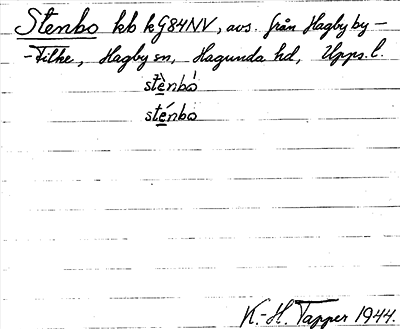 Stenbo kb kG84NV, avs. från Hagby by –
– Filke, Hagby sn, Hagunda hd, Upps. l.
stènbó
sténbò
K.-H. Tapper 1944.